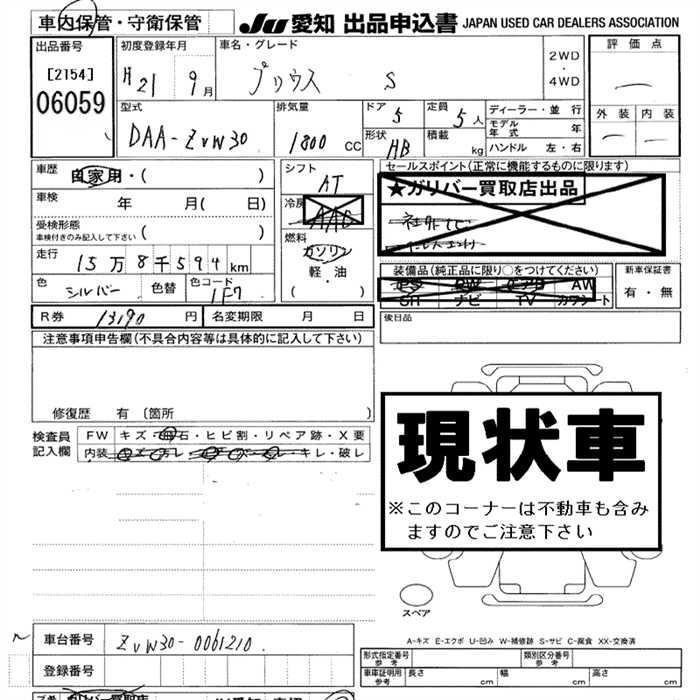 車内保管・守衛保管 JU 愛知 出品申込書 JAPAN USED CAR DEALERS ASSOCIATION
出品番号 初度登録年月 車名・グレード 2WD・4WD 評価点
[2154] H 21 9月 プリウス S
06059
型式 排気量 ドア 5 定員 5人 ディーラー・並行 外装 内装
DAA-ZVW30 1800 CC 形状 HB 積載 kg モデル年式 年
ハンドル 左・右
車歴 自家用・( ) シフト AT セールスポイント(正常に機能するものに限ります)
車検 年 月( 日) 冷房 AAC ★ガリバー買取店出品
受検形態 車検付きのみ記入して下さい ( ) 燃料 ガソリン
走行 15万8千594km 軽・油
色 シルバー 色替 色コード 1F7 ( )
装備品(純正品に限り○をつけてください) 新車保証書
PS PW エアB AW 有・無
SR ナビ TV カワシート
R券 13190円 名変期限 月 日 後日品
注意事項申告欄(不具合内容等は具体的に記入して下さい)
修復歴 有〔箇所 〕
現状車
※このコーナーは不動車も含み
ますのでご注意下さい
検査員 FW キズ・飛石・ヒビ割・リペア跡・X要
記入欄 内装
キレ・破レ
スペア
A-キズ E-エクボ U-凹み W-補修跡 S-サビ C-腐食 XX-交換済
車台番号 ZVW30-0061210
形式指定番号 参考 類別区分番号 参考
登録番号 車庫証明用 参考 長さ cm 幅 cm 高さ cm
ガリバー買取店